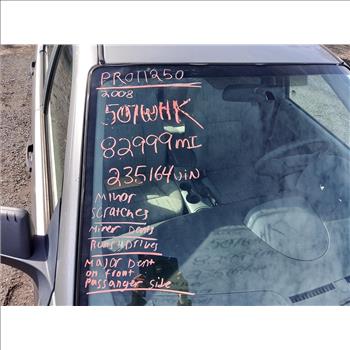 PRO11250
2008
82999mI
235164 vin
Minor
Scratches
Miner Dents
Runs & Drives
Major Dent
on front
Passanger side